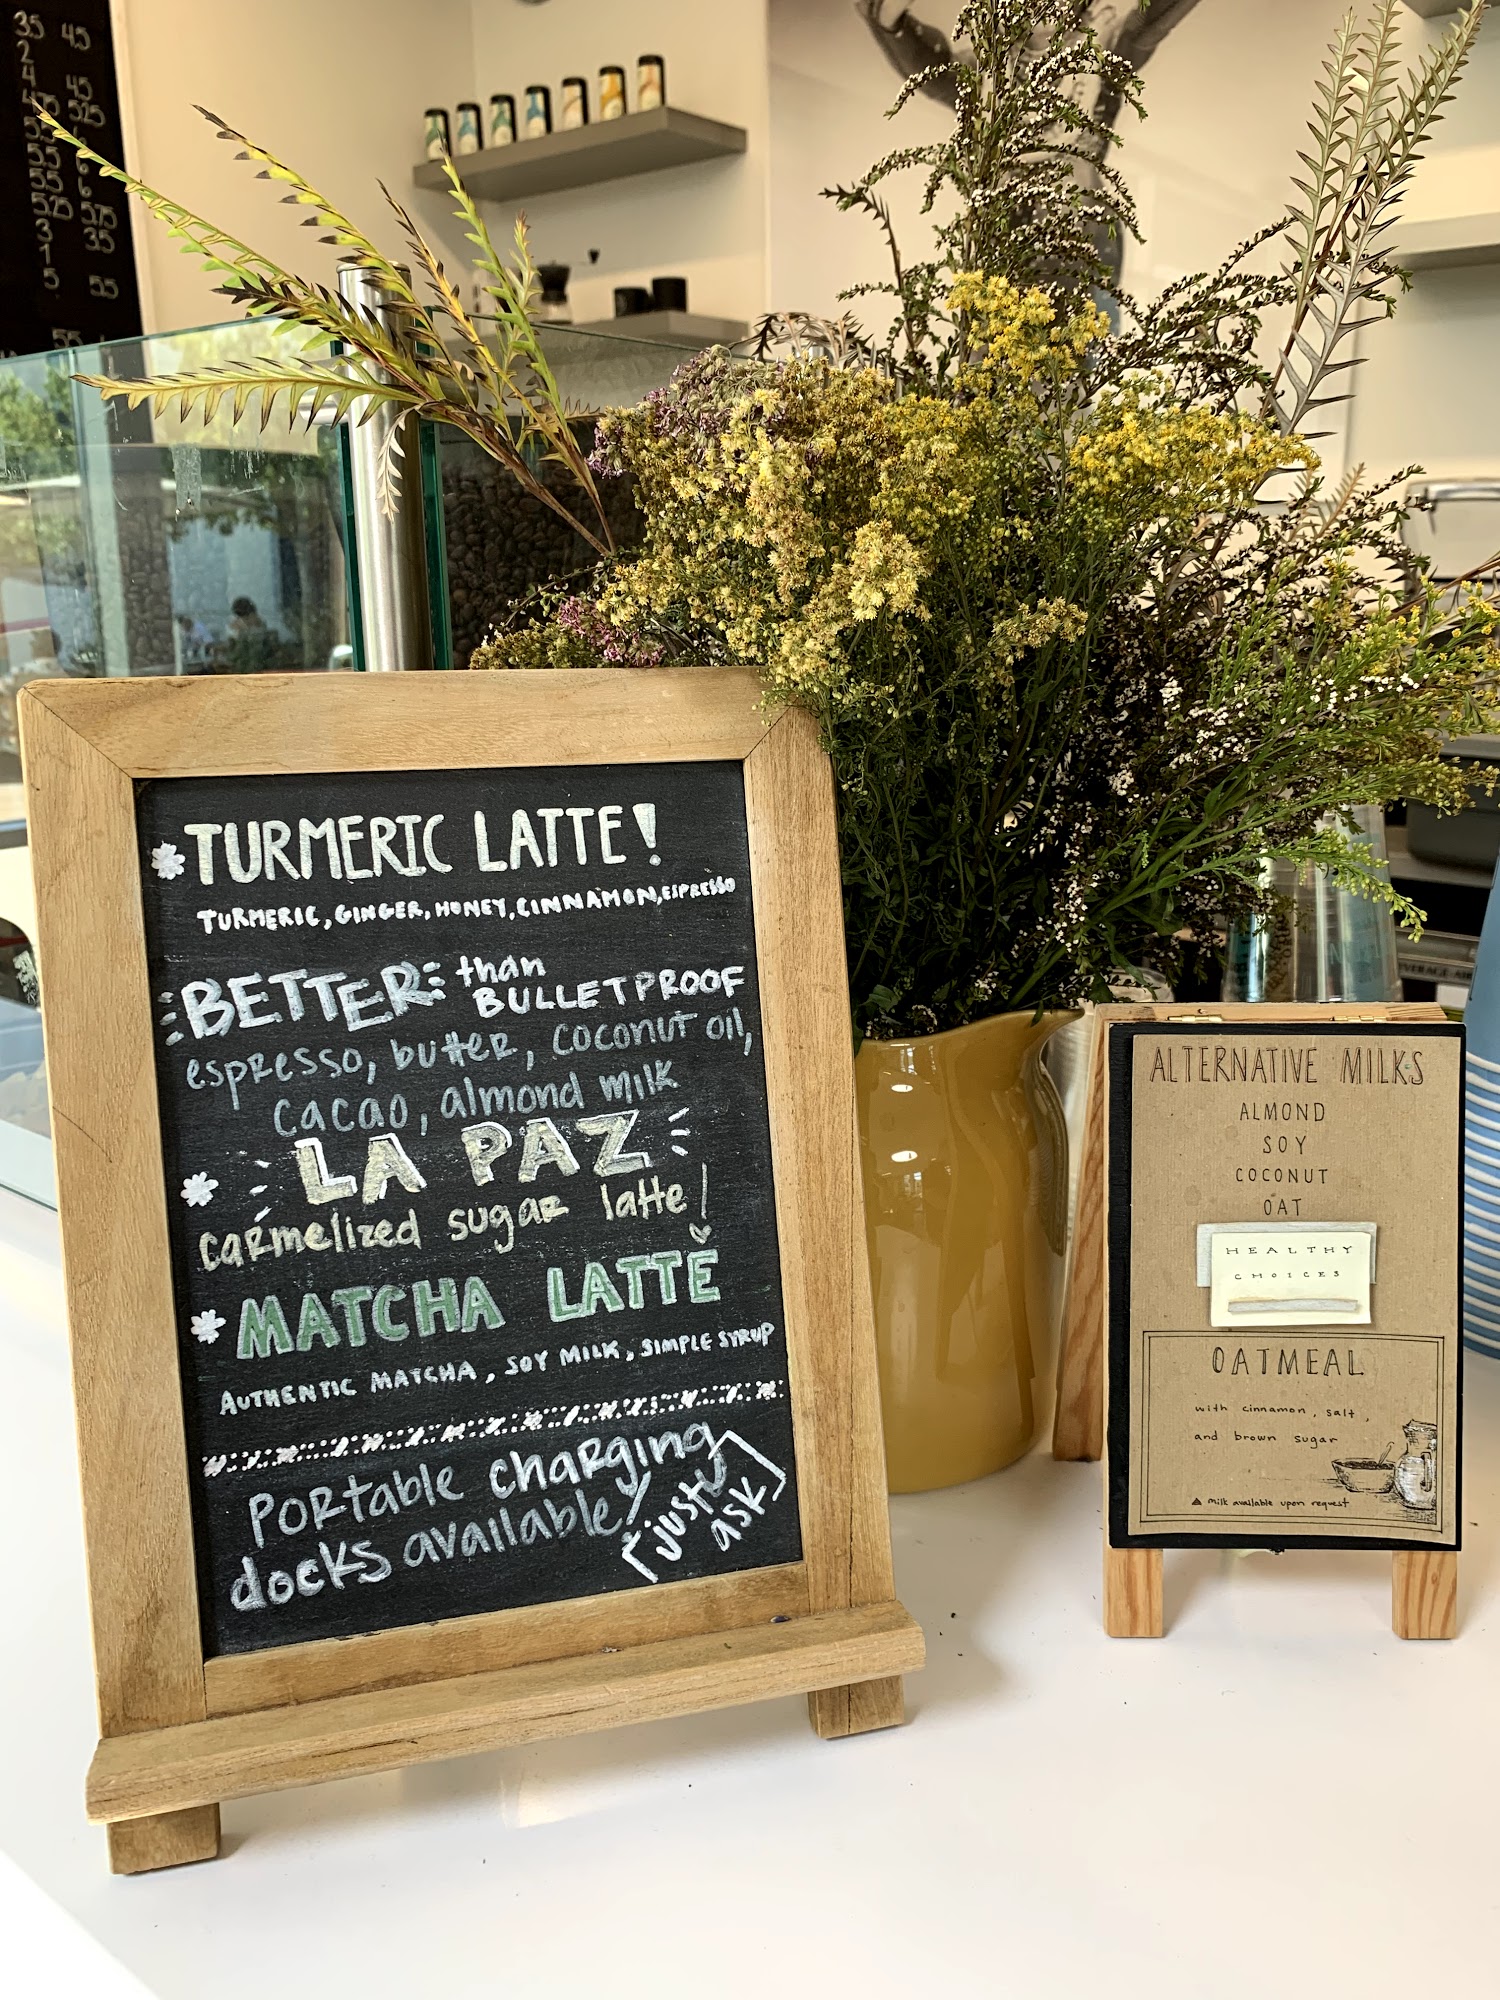 35 45
2
4 45
4.75 5.25
5.5 6
5.5 6
5.5 6
5.25 5.75
3 3.5
1
5 5.5
5.5
TURMERIC LATTE!
TURMERIC, GINGER, HONEY, CINNAMON, ESPRESSO
BETTER than
BULLETPROOF
espresso, butter, coconut oil,
cacao, almond milk
LA PAZ
carmelized sugar latte!
MATCHA LATTE
AUTHENTIC MATCHA, SOY MILK, SIMPLE SYRUP
Portable charging
docks available!
just
ask
ALTERNATIVE MILKS
ALMOND
SOY
COCONUT
OAT
HEALTHY
CHOICES
OATMEAL
with cinnamon, salt,
and brown sugar
milk available upon request